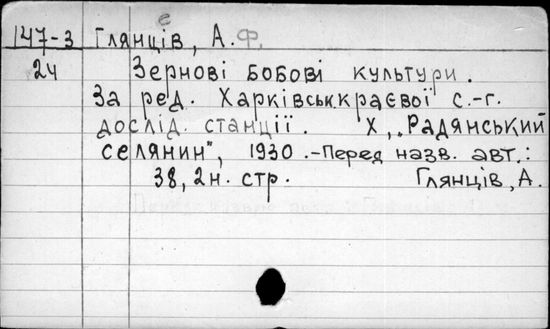 147-3 Глянців, А. Ф.
24 Зернові бобові культури.
За ред. Харківськ.краєвої с.-г.
дослід. станції. Х., „Радянський
селянин", 1930.-Перед назв. авт.:
38, 2н. стр. Глянців, А.